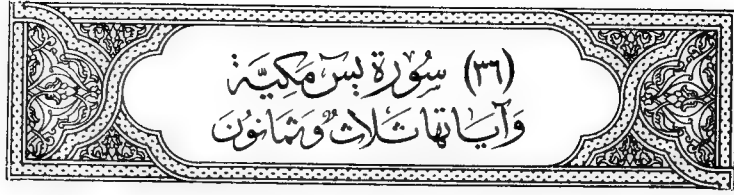 (٣٦) سُورَة يسٓ مَكيَّة
وَآيَاتهَا ثَلاثٌ وَثمَانونَ